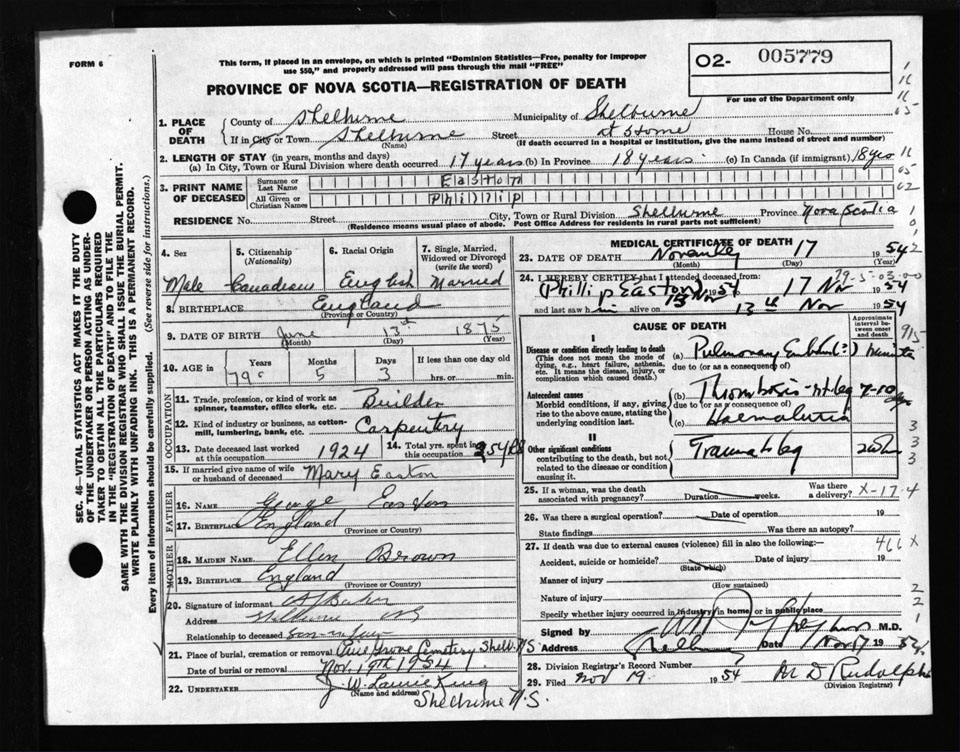 FORM 6
This form, if placed in an envelope, on which is printed "Dominion Statistics—Free, penalty for improper
use $50," and properly addressed will pass through the mail "FREE"
02- 005779
For use of the Department only
PROVINCE OF NOVA SCOTIA—REGISTRATION OF DEATH
1. PLACE OF DEATH
County of Shelburne Municipality of Shelburne
If in City or Town Shelburne Street at Home House No.
(Name) (If death occurred in a hospital or institution, give the name instead of street and number)
2. LENGTH OF STAY (in years, months and days)
(a) In City, Town or Rural Division where death occurred 17 years (b) In Province 18 years (c) In Canada (if immigrant) 18 yrs
3. PRINT NAME OF DECEASED
Surname or Last Name Easton
All Given or Christian Names Philip
RESIDENCE No. Street City, Town or Rural Division Shelburne Province Nova Scotia
(Residence means usual place of abode. Post Office Address for residents in rural parts not sufficient)
4. Sex Male
5. Citizenship (Nationality) Canadian
6. Racial Origin English
7. Single, Married, Widowed or Divorced (write the word) Married
8. BIRTHPLACE England
(Province or Country)
9. DATE OF BIRTH June 13th 1875
(Month) (Day) (Year)
10. AGE in Years Months Days If less than one day old
79 5 3 hrs. or min.
OCCUPATION
11. Trade, profession, or kind of work as spinner, teamster, office clerk, etc. Builder
12. Kind of industry or business, as cotton-mill, lumbering, bank, etc. Carpentry
13. Date deceased last worked at this occupation 1924
14. Total yrs. spent in this occupation
15. If married give name of wife or husband of deceased Mary Easton
FATHER
16. NAME George Easton
17. BIRTHPLACE England
(Province or Country)
MOTHER
18. MAIDEN NAME Ellen Brown
19. BIRTHPLACE England
(Province or Country)
20. Signature of informant
Address Shelburne NS
Relationship to deceased Son-in-law
21. Place of burial, cremation or removal Pine Grove Cemetery Shelb. N.S
Date of burial or removal Nov. 19th 1954
22. UNDERTAKER J. W. Laurie King
(Name and address)
Shelburne N.S.
MEDICAL CERTIFICATE OF DEATH
23. DATE OF DEATH November 17 1954
(Month) (Day) (Year)
24. I HEREBY CERTIFY that I attended deceased from:
29-5-03-00
(Phillip Easton) 13 Nov 1954 17 Nov 1954
and last saw him alive on 13th Nov 1954
CAUSE OF DEATH
Approximate interval between onset and death
I
Disease or condition directly leading to death
(This does not mean the mode of dying, e.g., heart failure, asthenia, etc. It means the disease, injury, or complication which caused death.)
(a) Pulmonary
due to (or as a consequence of)
Antecedent causes
Morbid conditions, if any, giving rise to the above cause, stating the underlying condition last.
(b) Thrombosis
due to (or as a consequence of)
(c)
II
Other significant conditions
contributing to the death, but not related to the disease or condition causing it.
Trauma to leg
25. If a woman, was the death associated with pregnancy? Duration weeks. Was there a delivery? X-17-4
26. Was there a surgical operation? Date of operation 19
State findings Was there an autopsy?
27. If death was due to external causes (violence) fill in also the following:—
Accident, suicide or homicide? Date of injury 19
(State which)
Manner of injury
(How sustained)
Nature of injury
Specify whether injury occurred in industry, in home, or in public place
Signed by M.D.
Address Shelburne Date Nov 17 1954
28. Division Registrar's Record Number
29. Filed Nov 19 1954 M D Rudolph
(Division Registrar)
SEC. 46—VITAL STATISTICS ACT MAKES IT THE DUTY
OF THE UNDERTAKER OR PERSON ACTING AS UNDER-
TAKER TO OBTAIN ALL THE PARTICULARS REQUIRED
IN THE "REGISTRATION OF DEATH" AND TO FILE THE
SAME WITH THE DIVISION REGISTRAR WHO SHALL ISSUE THE BURIAL PERMIT.
WRITE PLAINLY WITH UNFADING INK. THIS IS A PERMANENT RECORD.
Every item of information should be carefully supplied. (See reverse side for instructions.)